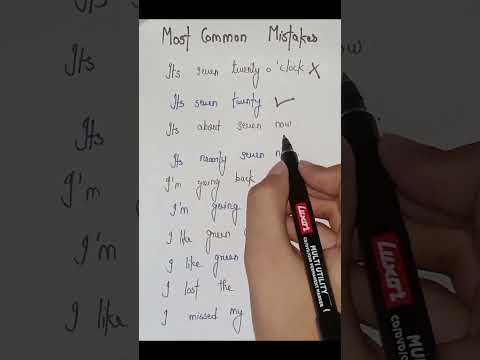 Most Common Mistakes
Its seven twenty o'clock X
Its seven twenty ✓
Its about seven now
Its nearly seven n
I'm going back
I'm going
I'm
I like green
I like green
I lost the
I like
I missed my
Luxor
MULTI UTILITY